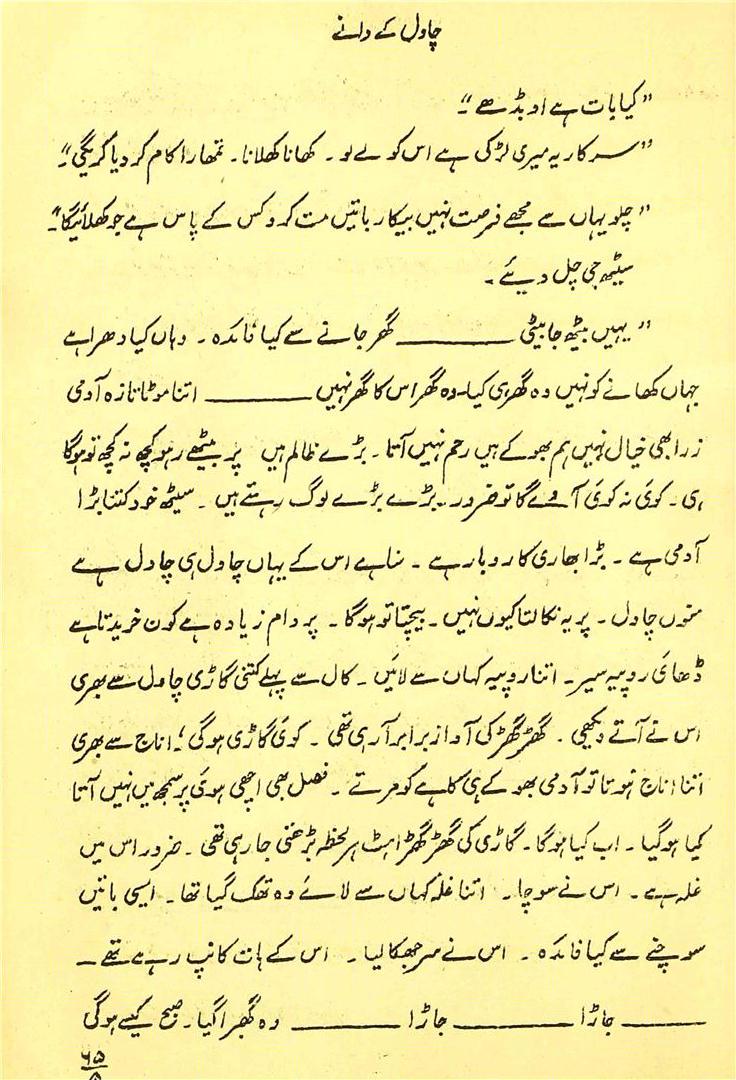 چاول کے دانے
”کیا بات ہے او بڈھے“۔
”سرکار یہ میری لڑکی ہے اس کو لے لو۔ کھانا کھلانا۔ تمھارا کام کر دیا کریگی“۔
”چلو یہاں سے مجھے فرصت نہیں بیکار باتیں مت کرو کس کے پاس ہے جو کھلائیگا“۔
سیٹھ جی چل دیئے۔
”یہیں بیٹھ جا بیٹی ـــــــــ گھر جانے سے کیا فائدہ۔ وہاں کیا دھرا ہے
جہاں کھانے کو نہیں وہ گھر ہی کیا۔ وہ گھر اس کا گھر نہیں ـــــــــ اتنا موٹا تازہ آدمی
زرا بھی خیال نہیں ہم بھوکے ہیں رحم نہیں آتا۔ بڑے ظالم ہیں پر بیٹھے رہو کچھ نہ کچھ تو ہوگا
ہی۔ کوئی نہ کوئی آوے گا تو ضرور۔ بڑے بڑے لوگ رہتے ہیں۔ سیٹھ خود کتنا بڑا
آدمی ہے۔ بڑا بھاری کاروبار ہے۔ سنا ہے اس کے یہاں چاول ہی چاول ہے
منوں چاول۔ پر یہ نکالتا کیوں نہیں۔ بیچتا تو ہوگا۔ پر دام زیادہ ہے کون خریدتا ہے
ڈھائی روپیہ سیر۔ اتنا روپیہ کہاں سے لائیں۔ کال سے پہلے کتنی گاڑی چاول سے بھری
اس نے آتے دیکھی۔ گھڑ گھڑ کی آواز برابر آ رہی تھی۔ کوئی گاڑی ہوگی، اناج سے بھری
اتنا اناج ہوتا تو آدمی بھوکے ہی کاہے کو مرتے۔ فصل بھی اچھی ہوئی پر سمجھ میں نہیں آتا
کیا ہوگیا۔ اب کیا ہوگا۔ گاڑی کی گھڑ گھڑاہٹ ہر لحظہ بڑھتی جا رہی تھی۔ ضرور اس میں
غلہ ہے۔ اس نے سوچا۔ اتنا غلہ کہاں سے لائے وہ تھک گیا تھا۔ ایسی باتیں
سوچنے سے کیا فائدہ۔ اس نے سر جھکا لیا۔ اس کے ہات کانپ رہے تھے۔
ـــــــــ جاڑا ـــــــــ جاڑا ـــــــــ وہ گھبرا گیا۔ صبح کیسے ہوگی
۶۵